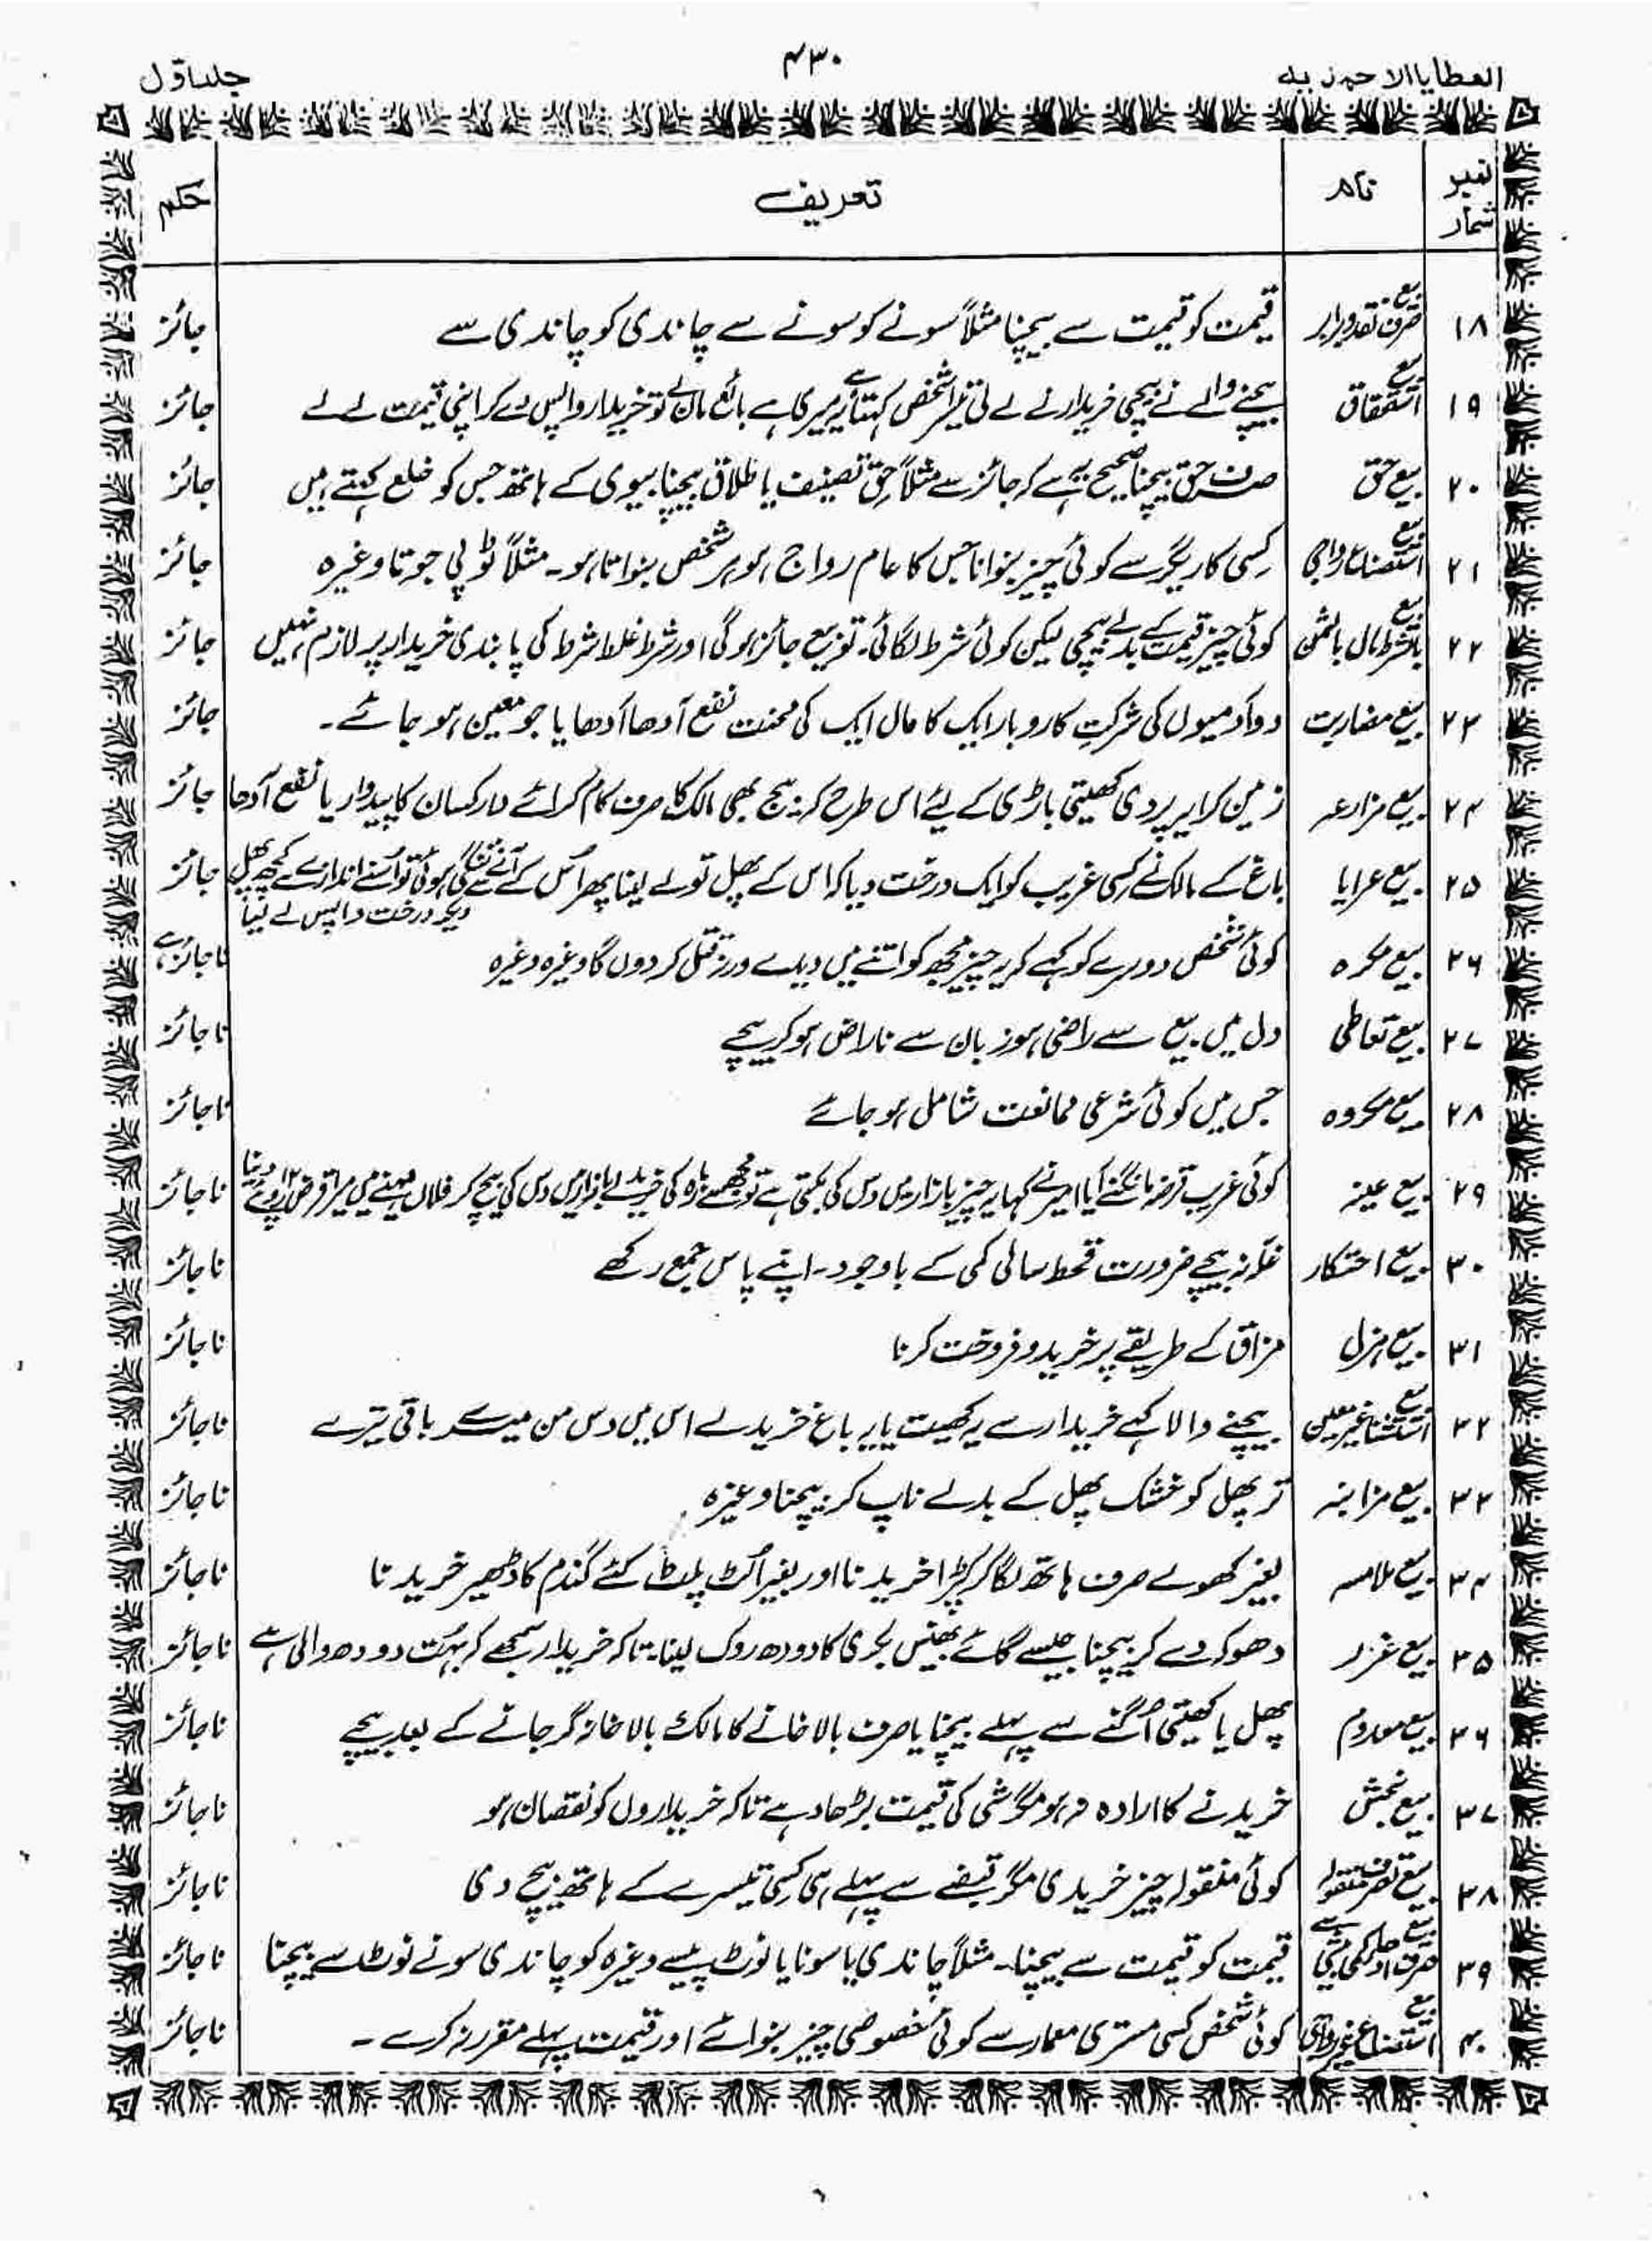 العطایا الاحمدیہ ۴۳۰ جلد اول
نمبر شمار نام تعریف حکم
۱۸ بیع صرف نقد و برابر قیمت کو قیمت سے بیچنا مثلاً سونے کو سونے سے چاندی کو چاندی سے جائز
۱۹ بیع استحقاق بیچنے والے نے بیچی خریدار نے لے لی تیسرا شخص کہتا ہے یہ میری ہے بائع مان لے تو خریدار واپس دے کر اپنی قیمت لے لے جائز
۲۰ بیع حق صرف حق بیچنا صحیح یہ ہے کہ جائز ہے مثلاً حق تصنیف یا طلاق بیچنا بیوی کے ہاتھ جس کو خلع کہتے ہیں جائز
۲۱ بیع استصناع رواجی کسی کاریگر سے کوئی چیز بنوانا جس کا عام رواج ہو ہر شخص بنواتا ہو۔ مثلاً ٹوپی جوتا وغیرہ جائز
۲۲ بیع بالشرط مال بالثمن کوئی چیز قیمت کے بدلے بیچی لیکن کوئی شرط لگائی۔ تو بیع جائز ہوگی اور شرط غلط شرط کی پابندی خریدار پر لازم نہیں جائز
۲۳ بیع مضاربت دو آدمیوں کی شرکتِ کاروبار ایک کا مال ایک کی محنت نفع آدھا آدھا یا جو معین ہو جائے۔ جائز
۲۴ بیع مزارعہ زمین کرایہ پر دی کھیتی باڑی کے لیے اس طرح کہ بیج بھی مالک کا صرف کام کرائے دار کسان کا پیداوار یا نفع آدھا جائز
۲۵ بیع عرایا باغ کے مالک نے کسی غریب کو ایک درخت دیا کہ اس کے پھل تو لے لینا پھر اُس کے آنے سے تنگی ہوئی تو اُسے اندازے سے کچھ پھل جائز
دیکر درخت واپس لے لیا
۲۶ بیع مکرہ کوئی شخص دوسرے کو کہے کہ یہ چیز مجھ کو اتنے میں دیدے ورنہ قتل کر دوں گا وغیرہ وغیرہ ناجائز ہے
۲۷ بیع تعاطی دل میں بیع سے راضی ہو زبان سے ناراض ہو کر بیچے ناجائز
۲۸ بیع مکروہ جس میں کوئی شرعی ممانعت شامل ہو جائے ناجائز
۲۹ بیع عینہ کوئی غریب قرضہ مانگنے آیا امیر نے کہا یہ چیز بازار میں دس کی بکتی ہے تو مجھ سے بارہ کی خرید لے بازار میں دس کی بیچ کر فلاں مہینے میں میرا قرض ۱۲ روپے دینا ناجائز
۳۰ بیع احتکار غلّہ نہ بیچے ضرورت قحط سالی کمی کے باوجود۔ اپنے پاس جمع رکھے ناجائز
۳۱ بیع ہزل مزاق کے طریقے پر خرید و فروخت کرنا ناجائز
۳۲ بیع استثنا غیر معین بیچنے والا کہے خریدار سے یہ کھیت یا یہ باغ خرید لے اس میں دس من میرے باقی تیرے ناجائز
۳۳ بیع مزابنہ تر پھل کو خشک پھل کے بدلے ناپ کر بیچنا وغیرہ ناجائز
۳۴ بیع ملامسہ بغیر کھولے صرف ہاتھ لگا کر کپڑا خریدنا اور بغیر اُلٹ پلٹ کئے گندم کا ڈھیر خریدنا ناجائز
۳۵ بیع غرر دھوکہ دے کر بیچنا جیسے گائے بھینس بکری کا دودھ روک لینا۔ تاکہ خریدار سمجھے کہ بہت دودھ والی ہے ناجائز
۳۶ بیع معدوم پھل یا کھیتی اُگنے سے پہلے بیچنا یا صرف بالا خانے کا مالک بالا خانہ گر جانے کے بعد بیچے ناجائز
۳۷ بیع نجش خریدنے کا ارادہ نہ ہو مگر شی کی قیمت بڑھا دے تاکہ خریداروں کو نقصان ہو ناجائز
۳۸ بیع تصرف منقولہ کوئی منقولہ چیز خریدی مگر قبضے سے پہلے ہی کسی تیسرے کے ہاتھ بیچ دی ناجائز
۳۹ بیع صرف ادھار کمی بیشی سے قیمت کو قیمت سے بیچنا۔ مثلاً چاندی یا سونا یا نوٹ پیسے وغیرہ کو چاندی سونے نوٹ سے بیچنا ناجائز
۴۰ بیع استصناع غیر رواجی کوئی شخص کسی مستری معمار سے کوئی خصوصی چیز بنوائے اور قیمت پہلے مقرر نہ کرے۔ ناجائز